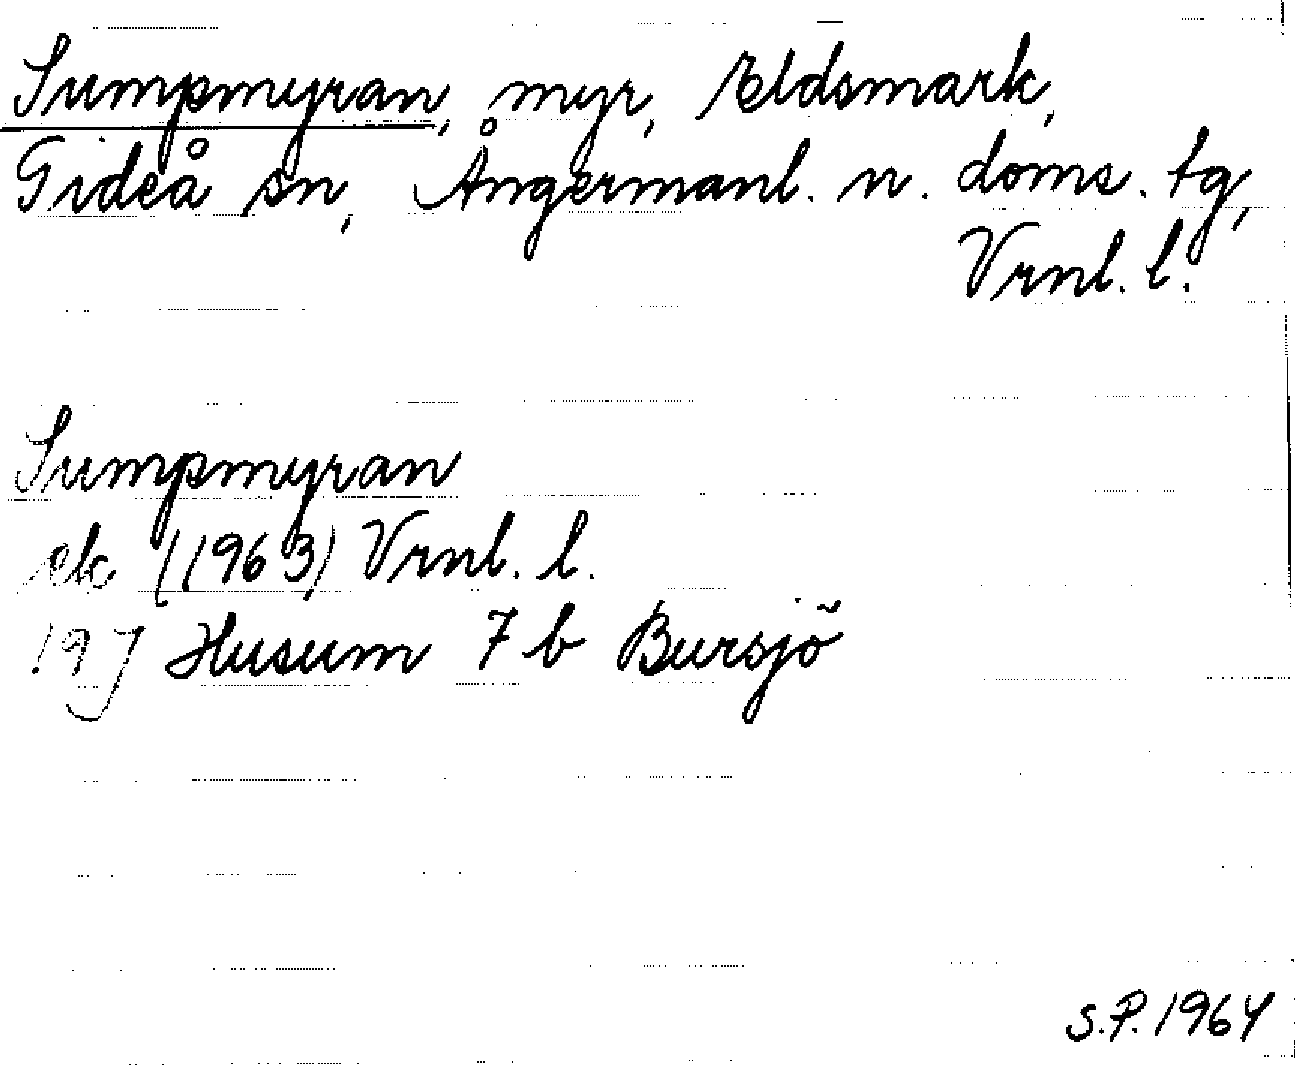 Sumpmyran, myr, Eldsmark,
Gideå sn, Ångermanl. n. doms. tg,
Vrnl. l.
Sumpmyran
ek (1963) Vrnl. l.
19 J Husum 7 b Bursjö
S.P. 1964